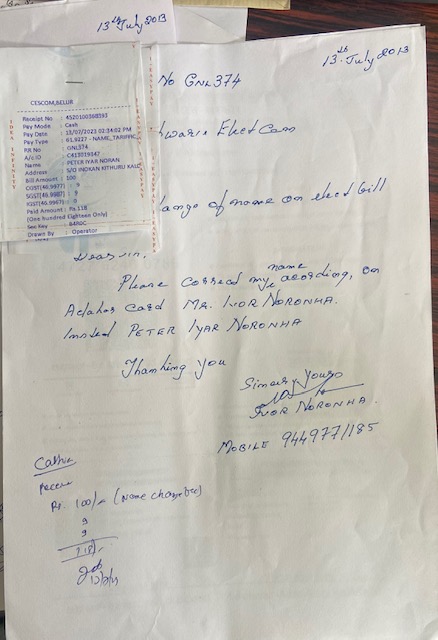 13th July 2013
13th July 2013
No GNL374
CESCOM,BELUR
Receipt No : 4520100368392
Pay Mode : Cash
Pay Date : 13/07/2023 02:34:02 PM
Pay Type : 61.9227 - NAME_TARIFFIC
RR No : GNL374
A/c ID
Name : PETER IYAR NORAN
Address : S/O INDKAN KITHURU KALL
Bill Amount : 100
CGST(46.9977) : 9
SGST(46.9987) : 9
IGST(46.9967) : 0
Paid Amount : Rs 118
(One hundred Eighteen Only)
Sec Key : 84R0C
Drawn By : Operator
IDEA INFINITY
EASYPAY
EASYPAY
Elect Com
ange of name on elect bill
Dear sir,
Please correct my name acording, on
Adahar Card MR. IVOR NORONHA.
Insted PETER IYAR NORONHA
Thanking you
Yours
IVOR NORONHA.
MOBILE 944977/185
Cashier
Receive
Rs. 100/- (Name change fee)
9
9
118/-